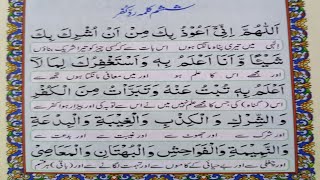 ششم کلمہ ردّ کفر
اَللّٰهُمَّ اِنِّیْٓ اَعُوْذُ بِكَ مِنْ اَنْ اُشْرِكَ بِكَ
الٰہی میں تیری پناہ مانگتا ہوں اس بات سے کہ کسی چیز کو تیرا شریک بناؤں
شَیْئًا وَّ اَنَا اَعْلَمُ بِهٖ وَ اَسْتَغْفِرُكَ لِمَا لَآ
مجھے اس کا علم ہو اور میں معافی مانگتا ہوں تجھ سے
اَعْلَمُ بِهٖ تُبْتُ عَنْهُ وَ تَبَرَّاْتُ مِنَ الْكُفْرِ
اس (گناہ) کی جس کا مجھے علم نہیں میں نے اس سے توبہ کی اور بیزار ہوا کفر سے
وَ الشِّرْكِ وَ الْكِذْبِ وَ الْغِیْبَةِ وَ الْبِدْعَةِ
اور شرک سے اور جھوٹ سے اور غیبت سے اور بدعت سے
وَ النَّمِیْمَةِ وَ الْفَوَاحِشِ وَ الْبُهْتَانِ وَ الْمَعَاصِیْ
اور چغلی سے اور بے حیائی کے کاموں سے اور تہمت لگانے سے اور (باقی) ہر قسم